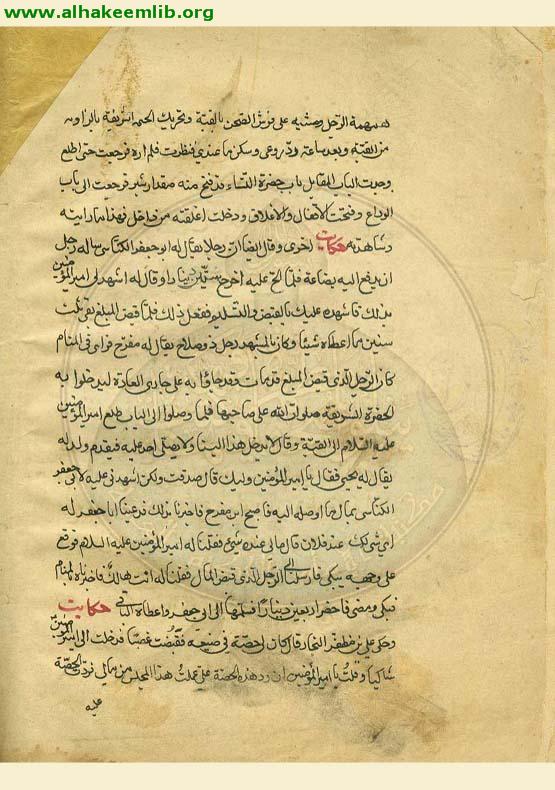 www.alhakeemlib.org
همهمة الرجل ومشيه على فرش الصحن بالقبة وتحريك الختمة الشريفة بالزاوية
من القبة وبعد ساعة ردّ روعي وسكن ما عندي فنظرت فلم اره فرجعت حتى اطلع
وجدت الباب المقابل باب حضرة النساء قد فتح منه مقدار شبر فرجعت الى باب
الوداع وفتحت الاقفال والاغلاق ودخلت اغلقته من داخل فهذا ما رايته
وشاهدته حكايت اخرى وقال ايضا ان رجلا يقال له ابو جعفر الكناسي ساله رجل
ان يدفع اليه بضاعة فلما الح عليه اخرج ستين دينارا وقال له اشهد لي امير المؤمنين
بذلك فاشهده عليك بالقبض والتسليم ففعل ذلك فلما قبض المبلغ بقي ثلث
سنين ما اعطاه شيئا وكان بالمشهد رجل ذو صلاح يقال له مفرح فراى في المنام
كان الرجل الذي قبض المبلغ قد مات وقد جاؤا به على جاري العادة ليدخلوا به
الحضرة الشريفة صلوات الله على صاحبها فلما وصلوا الى الباب طلع امير المؤمنين
عليه السلام الى القبة وقال لا يدخل هذا الينا ولا يصلي احد عليه فتقدم ولد له
يقال له يحيى فقال يا امير المؤمنين وليك قال صدقت ولكن اشهدني عليه لابي جعفر
الكناسي بمال ما اوصله اليه فاصبح ابن مفرح فاخبرنا بذلك فدعينا ابا جعفر له
اي شي لك عند فلان قال مالي عنده شيء فقلنا له امير المؤمنين عليه السلام فوقع
على وجهه يبكي فارسلنا الى الرجل الذي قبض المال فقلنا له انت هالك فاخبرناه بالمنام
فبكى ومضى فاحضر اربعين دينارا فسلمها الى ابي جعفر واعطاه الباقي حكايت
وحكى علي بن مظفر النجار قال كان لي حصة في ضيعة فقبضت غصبا فدخلت الى امير المؤمنين
شاكيا وقلت يا امير المؤمنين ان رد هذه الحصة علي عملت هذا المجلس من مالي فردت الحصة
عليه